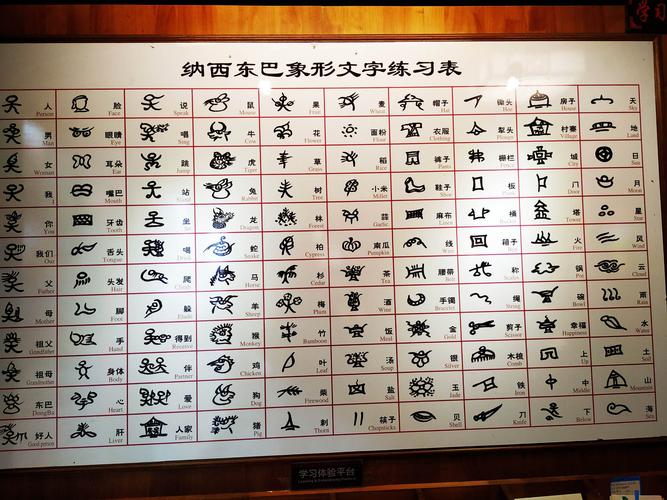 纳西东巴象形文字练习表
人 脸 说 鼠 果 麦 帽子 锄头 房子 天
Person Face Speak Mouse Fruit Wheat Hat Hoe House Sky
男 眼睛 唱 牛 花 面粉 衣服 犁头 村寨 地
Man Eye Sing Cow Flower Flour Clothing Plough Village Land
女 耳朵 跳 虎 草 稻 裤子 栅栏 城 日
Woman Ear Jump Tiger Grass Rice Pants Fence City Sun
我 嘴巴 站 兔 树 小米 鞋子 板 门 月
I Mouth Stand Rabbit Tree Millet Shoe Plank Door Moon
你 牙齿 坐 龙 林 蒜 麻布 桶 塔 星
You Tooth Sit Dragon Forest Garlic Linen Bucket Tower Star
我们 舌头 喝 蛇 柏 南瓜 线 箱子 火 风
Our Tongue Drink Snake Cypress Pumpkin Line Box Fire Wind
父 头发 爬 马 杉 茶 腰带 称 锅 云
Father Hair Climb Horse Cedar Tea Belt Scales Pot Cloud
母 脚 躲 羊 梅 酒 手镯 绳 碗 雨
Mother Foot Elude Sheep Plum Wine Bracelet String Bowl Rain
祖父 手 得到 猴 竹 饭 金 剪子 幸福 水
Grandfather Hand Receive Monkey Bamboon Meal Gold Scissor Happiness Water
祖母 身体 伴 鸡 叶 汤 银 木梳 上 土
Grandmother Body Partner Chicken Leaf Soup Silver Comb Up Soil
东巴 心 爱 狗 柴 盐 玉 铁 中 山
DongBa Heart Love Dog Firewood Salt Jade Iron Middle Mountain
好人 肝 人家 猪 刺 筷子 贝 刀 下 海
Good person Liver Family Pig Thorn Chopsticks Shell Knife Below Sea
学习体验平台